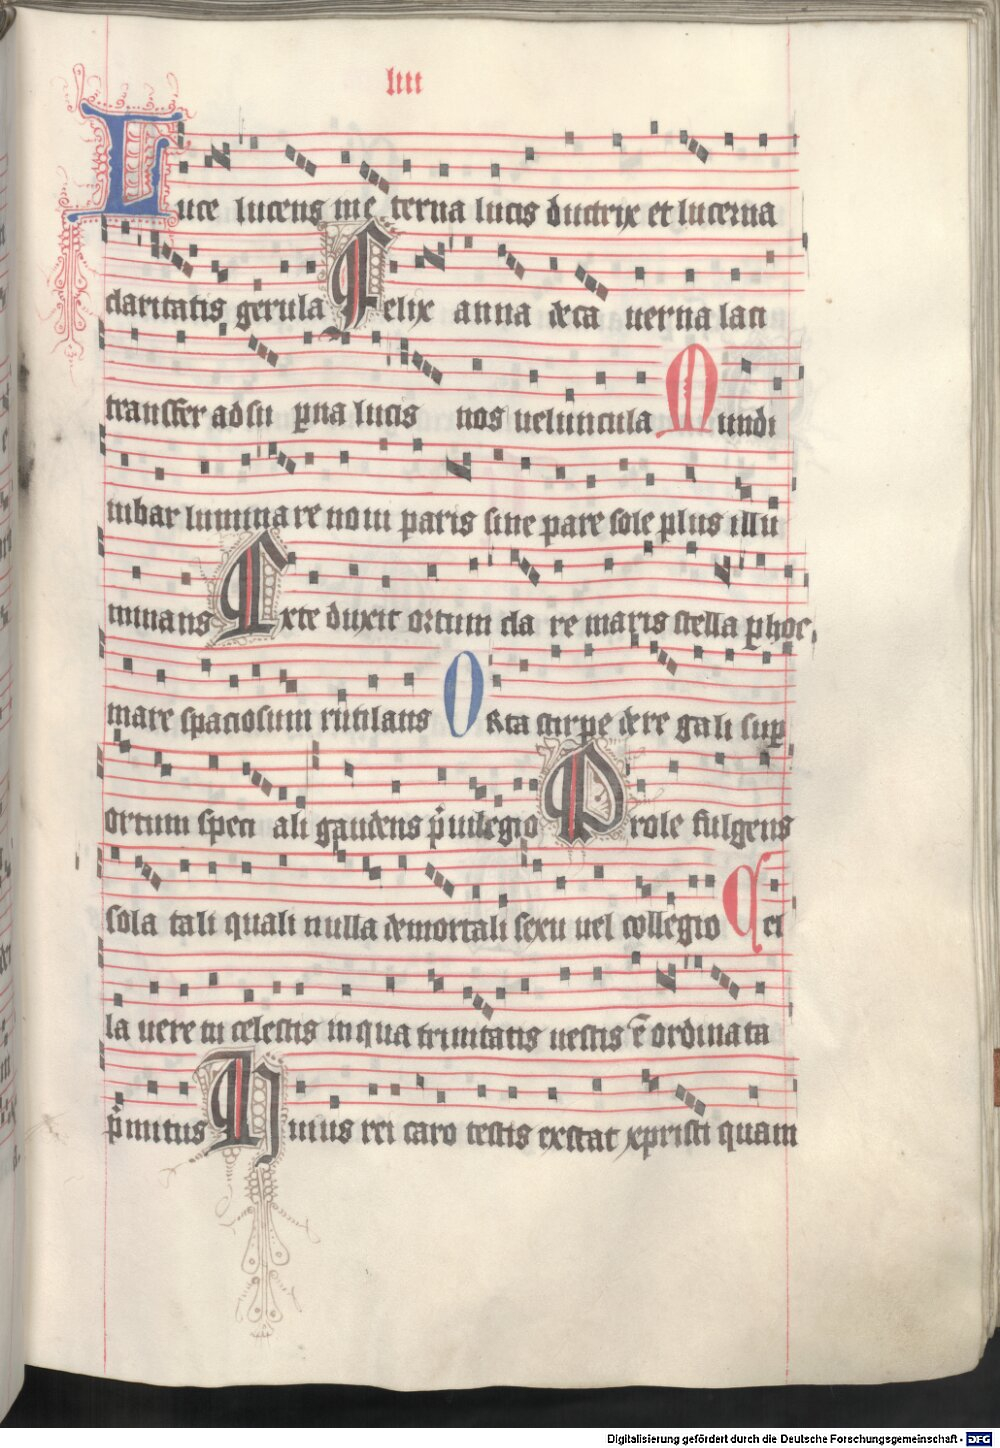 liiii
Luce lucens in e terna lucis ductrix et lucerna
claritatis gerula Felix anna de ca uerna laci
transfer ad su p̲na lucis nos uel uncula Mundi
iubar luminare noui paris sine pare sole plus illu
minans Exte duxit ortum cla re maris stella per hoc
mare spaciosum rutilans Orta stirpe de re gali sup̲
ortum speci ali gaudens p̓uilegio Prole fulgens
sola tali quali nulla de mortali sexu uel collegio Cel
la uere tu celestis in qua trinitatis uestis ē ordinata
p̓mitus Huius rei caro testis exstat xpristi quam
Digitalisierung gefördert durch die Deutsche Forschungsgemeinschaft - DFG